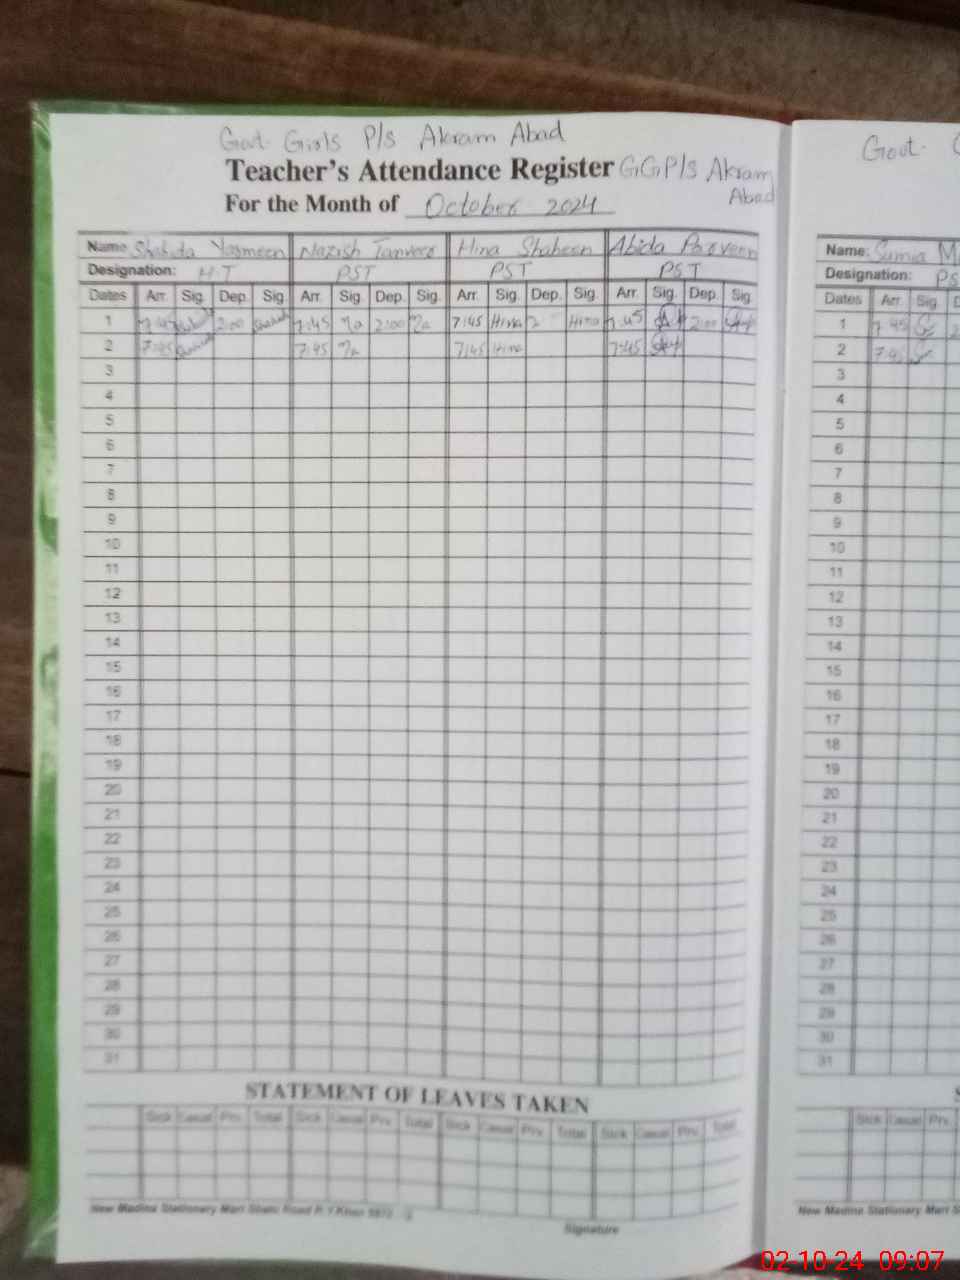 Govt. Girls P/s Akram Abad
Teacher's Attendance Register GGP/s Akram Abad
For the Month of October 2024
Name Shahida Yasmeen Nazish Tanveer Hina Shaheen Abida Parveen
Designation: H T PST PST PST
Dates Arr. Sig. Dep. Sig. Arr. Sig. Dep. Sig. Arr. Sig. Dep. Sig. Arr. Sig. Dep. Sig.
1 7:45 2:00 7:45 Na 2:00 Na 7:45 Hina 2 Hina 7:45 2:00
2 7:45 7:45 Na 7:45 Hina 7:45
3
4
5
6
7
8
9
10
11
12
13
14
15
16
17
18
19
20
21
22
23
24
25
26
27
28
29
30
31
STATEMENT OF LEAVES TAKEN
Sick Casual Prv. Total Sick Casual Prv. Total Sick Casual Prv. Total Sick Casual Prv. Total
New Madina Stationary Mart Shahi Road R.Y.Khan
Signature
Govt.
Name: Sumia
Designation: PS
Dates Arr. Sig.
1 7:45
2 7:45
3
4
5
6
7
8
9
10
11
12
13
14
15
16
17
18
19
20
21
22
23
24
25
26
27
28
29
30
31
Sick Casual Prv.
New Madina Stationary Mart
02-10-24 09:07